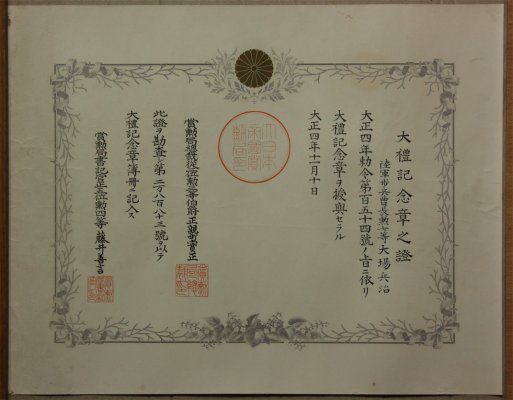 大禮記念章之證
陸軍歩兵曹長勲七等大場兵治
大正四年勅令第百五十四號ノ旨ニ依リ
大禮記念章ヲ授與セラル
大正四年十一月十日
大日本
帝國賞
勲局印
賞勲局總裁從二位勲二等伯爵正親町實正
此證ヲ勘査シ第二万八百八十三號ヲ以テ
大禮記念章簿冊ニ記入ス
賞勲局書記官正五位勲四等藤井善言